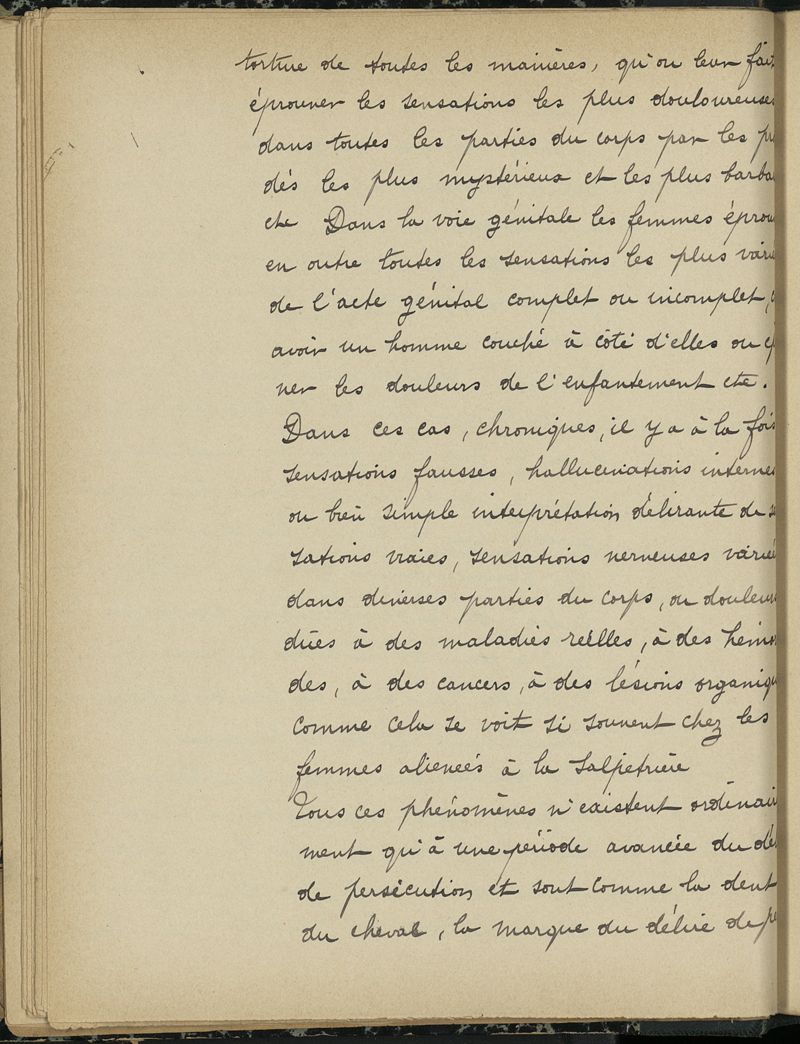 torture de toutes les manières, qu'on leur fait
éprouver les sensations les plus douloureuses
dans toutes les parties du corps par les pr
dés les plus mystérieux et les plus barba
etc Dans la voie génitale les femmes éprou
en outre toutes les sensations les plus varié
de l'acte génital complet ou incomplet,
avoir un homme couché à côté d'elles ou ép
ver les douleurs de l'enfantement etc.
Dans ces cas, chroniques, il y a à la fois
sensations fausses, hallucinations internes
ou bien simple interprétation délirante de s
sations vraies, sensations nerveuses variée
dans diverses parties du corps, ou douleurs
dûes à des maladies réelles, à des hémor
des, à des cancers, à des lésions organiqu
comme cela se voit si souvent chez les
femmes alienées à la Salpetrière
Tous ces phénomènes n'existent ordinair
ment qu'à une période avancée du dél
de persécution et sont comme la dent
du cheval, la marque du délire de pe